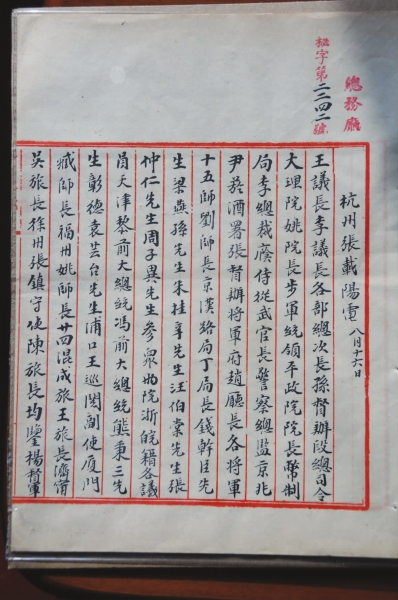 總務廳
秘字第二二四二號
杭州張載陽電 八月十六日
王議長李議長各部總次長孫督辦段總司令
大理院姚院長步軍統領平政院院長幣制
局李總裁蔭侍從武官長警察總監京兆
尹菸酒署張督辦將軍府趙廳長各將軍
十五師劉師長京漢路局丁局長錢幹臣先
生梁燕孫先生朱桂辛先生汪伯棠先生張
仲仁先生周子異先生參眾两院浙皖籍各議
員天津黎前大總統馮前大總統熊秉三先
生彰德袁芸台先生浦口王巡閱副使廈門
臧師長福州姚師長廿四混成旅王旅長濟甯
吳旅長徐州張鎮守使陳旅長均鑒楊督軍